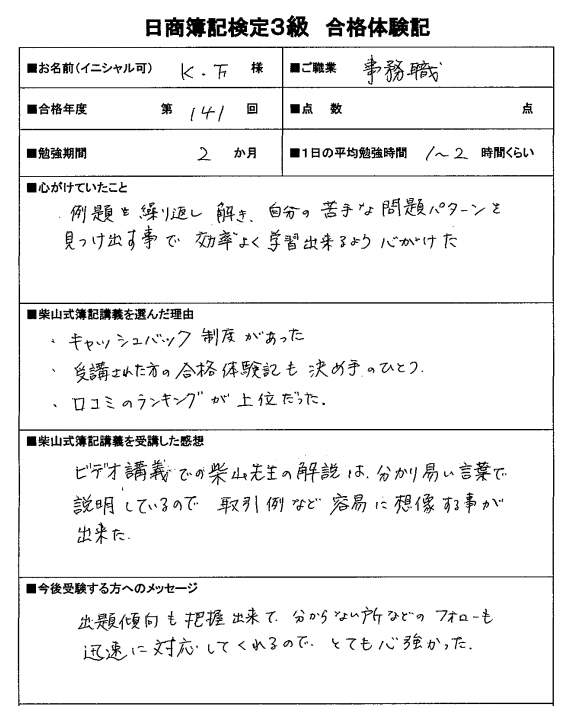 日商簿記検定3級 合格体験記
■お名前(イニシャル可) K.T 様 ■ご職業 事務職
■合格年度 第 141 回 ■点 数 点
■勉強期間 2 か月 ■1日の平均勉強時間 1～2 時間くらい
■心がけていたこと
・例題を繰り返し解き、自分の苦手な問題パターンを
見つけ出す事で効率よく学習出来るよう心がけた
■柴山式簿記講義を選んだ理由
・キャッシュバック制度があった
・受講された方の合格体験記も決め手のひとつ.
・口コミのランキングが上位だった.
■柴山式簿記講義を受講した感想
ビデオ講義での柴山先生の解説は、分かり易い言葉で
説明しているので 取引例など容易に想像する事が
出来た.
■今後受験する方へのメッセージ
出題傾向も把握出来て、分からない所などのフォローも
迅速に対応してくれるので、とても心強かった.